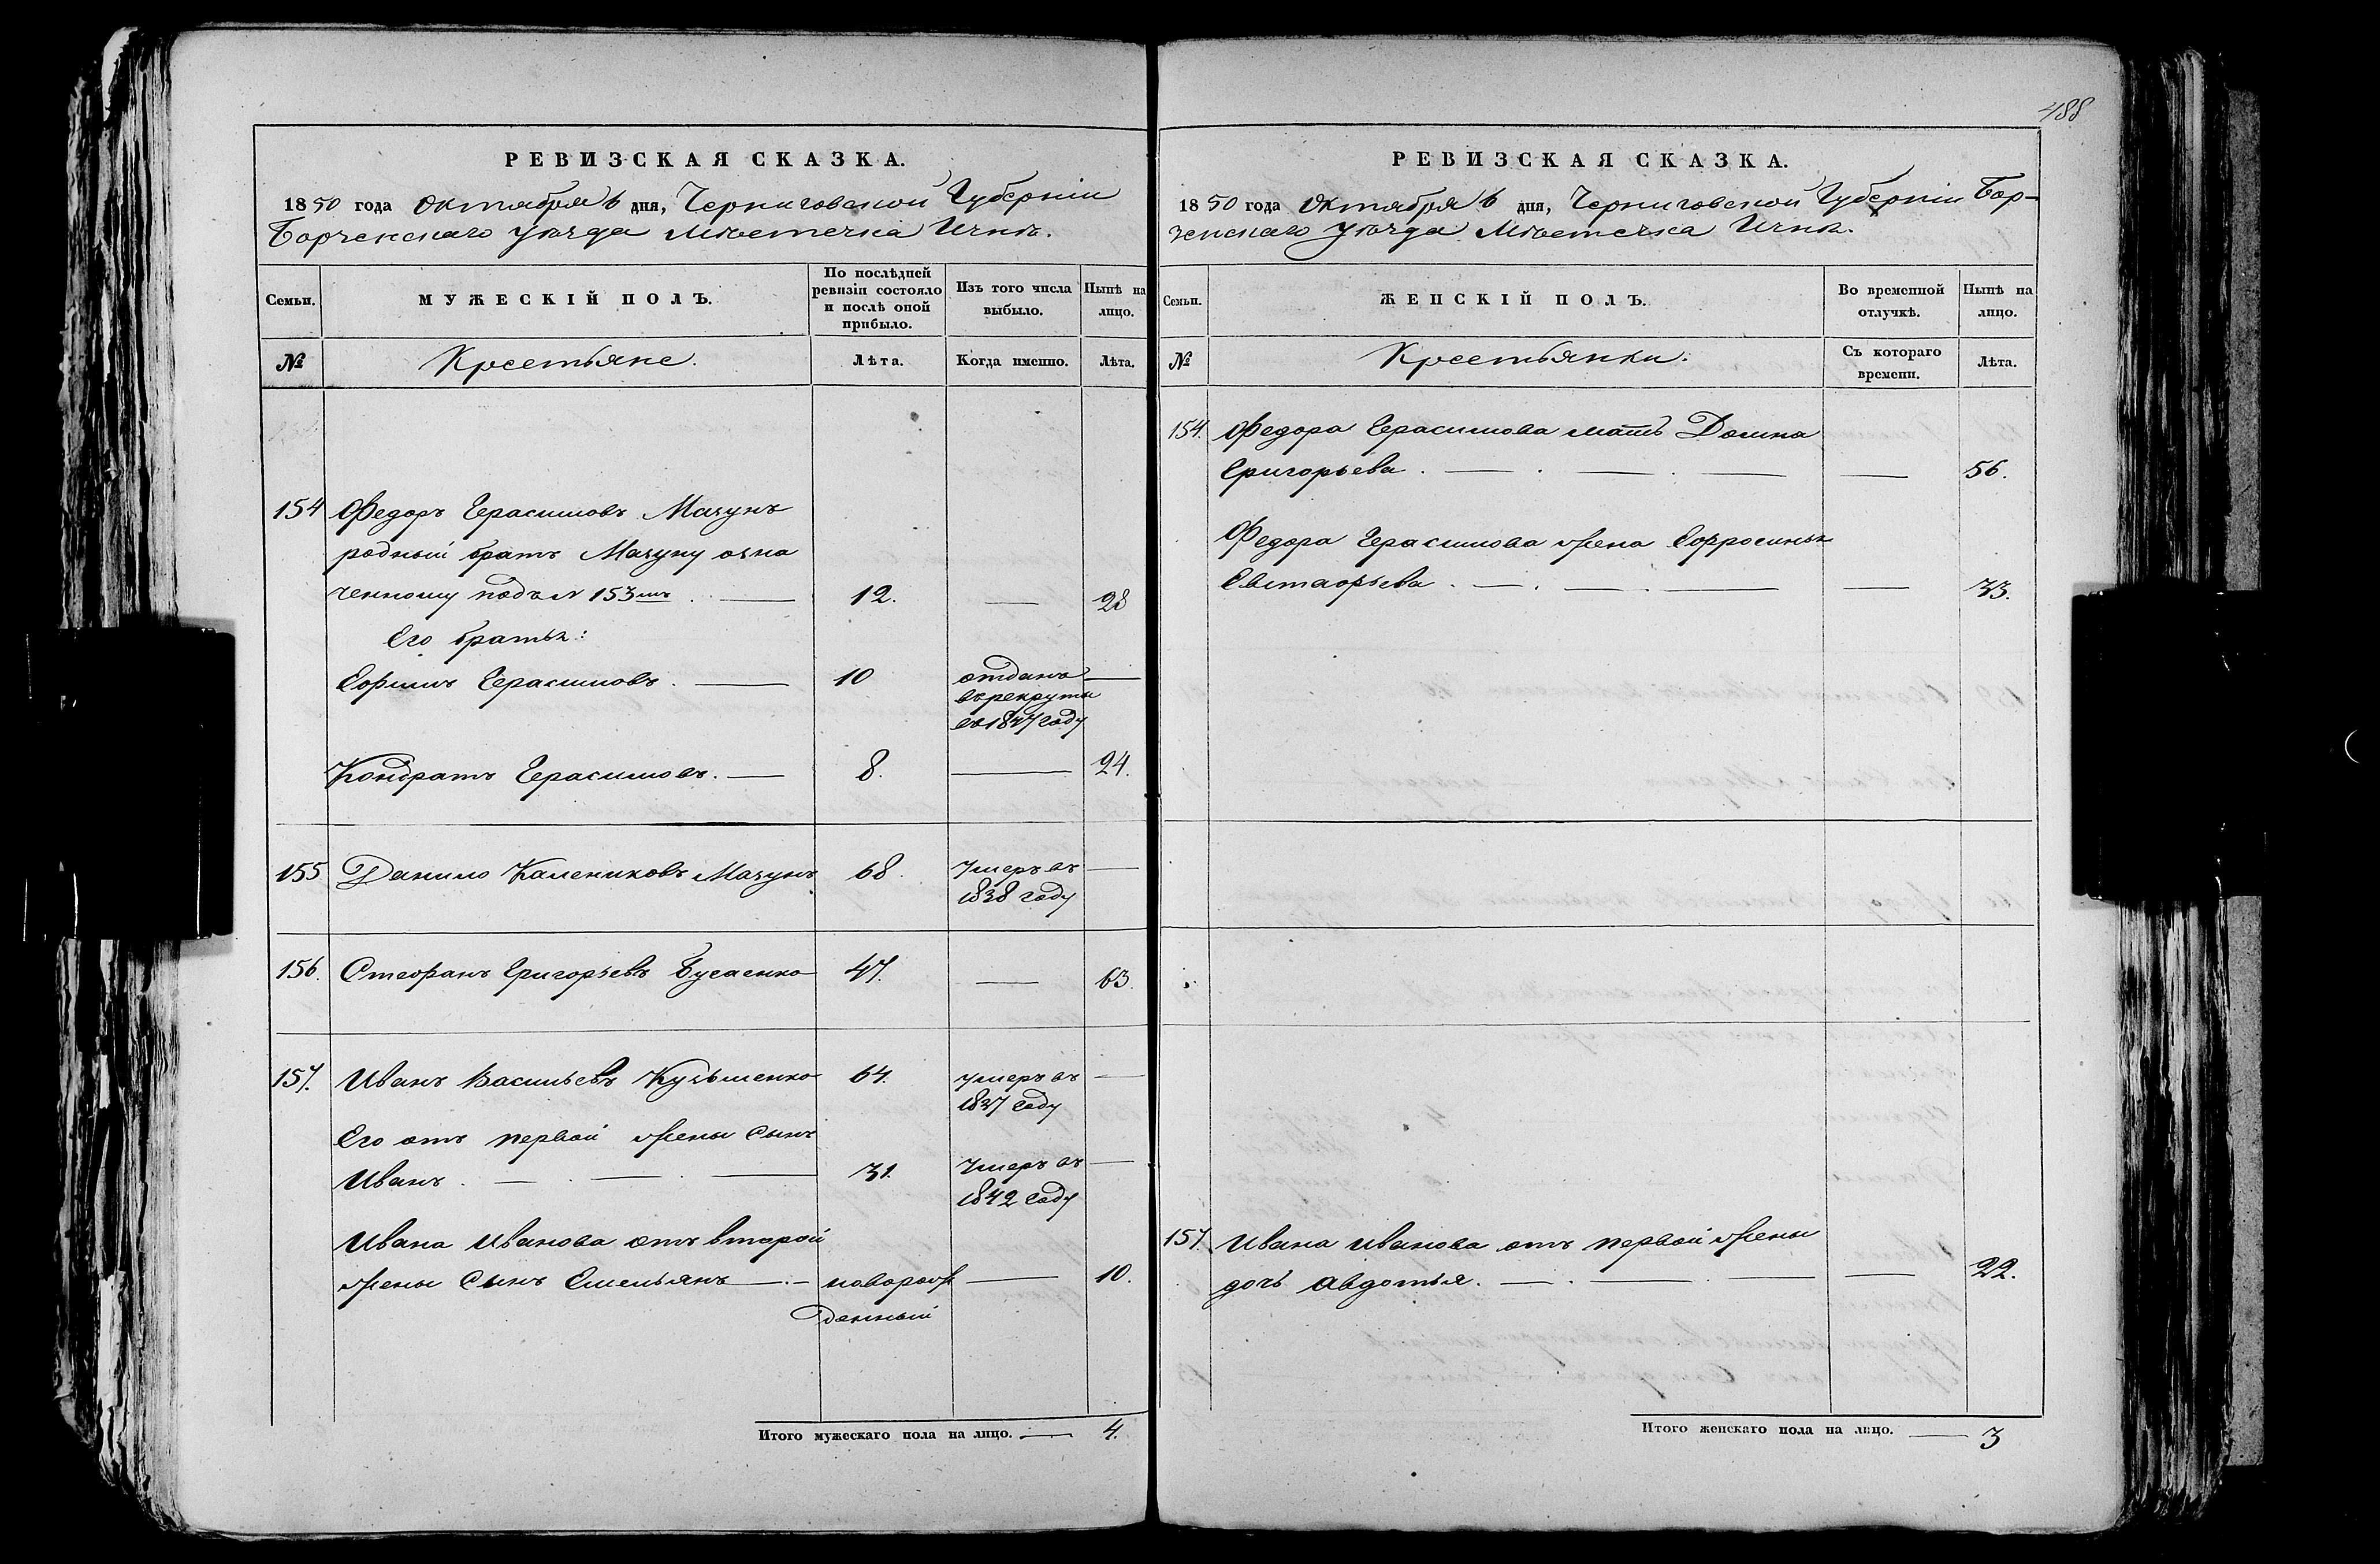 РЕВИЗСКАЯ СКАЗКА.
1850 года Октября 6 дня, Черниговской Губерніи
Борзенскаго уѣзда Мѣстечка Ични.
Семьи.
МУЖЕСКІЙ ПОЛЪ.
По послѣдней
ревизіи состояло
и послѣ оной
прибыло.
Изъ того числа
выбыло.
Нынѣ на
лицо.
№
Крестьяне.
Лѣта.
Когда именно.
Лѣта.
154 Федоръ Герасимовъ
родный братъ озна
ченному подъ N 153мъ . — 12. — 28
Его братья:
Ефимъ Герасимовъ . — 10 отданъ —
въ рекруты
въ 1847 году
Кондратъ Герасимовъ. — 8. — 24.
155 Данило Калениковъ 68. Умеръ въ —
1838 году
156. Стефанъ Григорьевъ 47. — 63.
157. Иванъ Васильевъ 64. умеръ въ —
1837 году
Его отъ первой жены сынъ
Иванъ . — . — . — 31. Умеръ въ —
1842 году
Ивана Иванова отъ второй
жены сынъ Емельянъ — . — новорож — 10.
денный
Итого мужескаго пола на лицо. — 4.
488
РЕВИЗСКАЯ СКАЗКА.
1850 года Октября 6 дня, Черниговской Губерніи Бор-
зенскаго уѣзда Мѣстечка Ични.
Семьи.
ЖЕНСКІЙ ПОЛЪ.
Во временной
отлучкѣ.
Нынѣ на
лицо.
№
Крестьянки.
Съ котораго
времени.
Лѣта.
154. Федора Герасимова мать Домна
Григорьева . — . — . — — 56.
Федора Герасимова жена Ефросинья
. — . — . — — 33.
157. Ивана Иванова отъ первой жены
дочь Авдотья. — . — . — — 22.
Итого женскаго пола на лицо. — 3